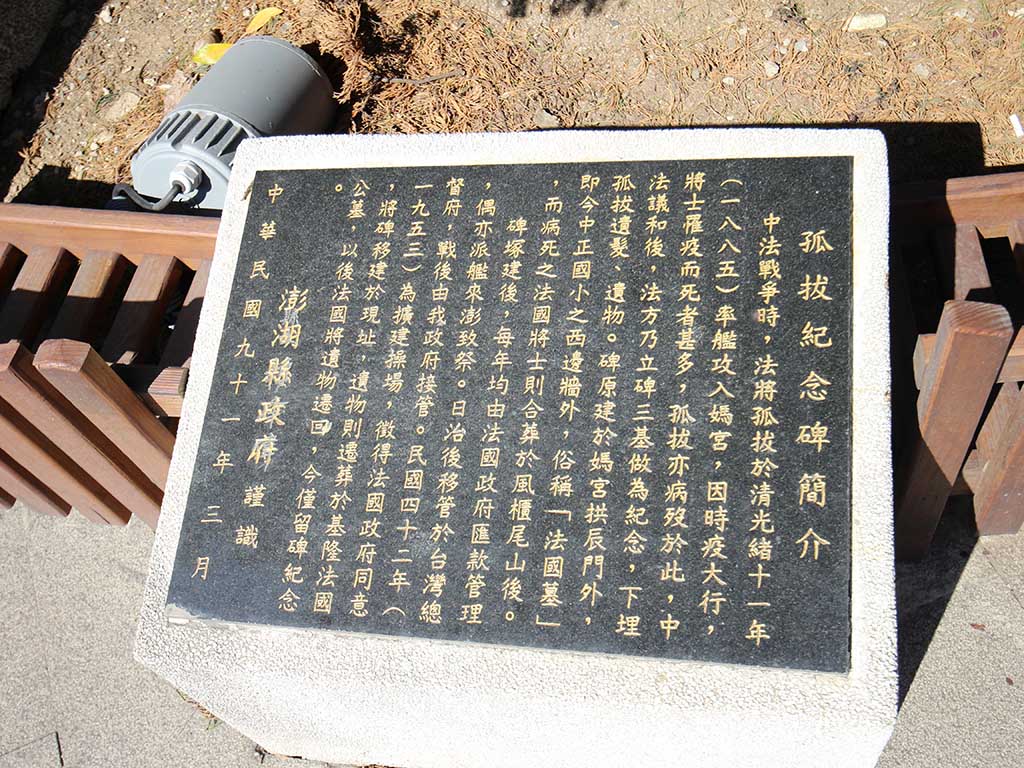 孤拔紀念碑簡介
中法戰爭時，法將孤拔於清光緒十一年
（一八八五）率艦攻入媽宮，因時疫大行，
將士罹疫而死者甚多，孤拔亦病歿於此，中
法議和後，法方乃立碑三基做為紀念，下埋
孤拔遺髮、遺物。碑原建於媽宮拱辰門外，
即今中正國小之西邊牆外，俗稱「法國墓」
，而病死之法國將士則合葬於風櫃尾山後。
碑塚建後，每年均由法國政府匯款管理
，偶亦派艦來澎致祭。日治後移管於台灣總
督府，戰後由我政府接管。民國四十二年（
一九五三）為擴建操場，徵得法國政府同意
，將碑移建於現址，遺物則遷葬於基隆法國
公墓，以後法國將遺物遷回，今僅留碑紀念
。
澎湖縣政府 謹識
中華民國九十一年三月